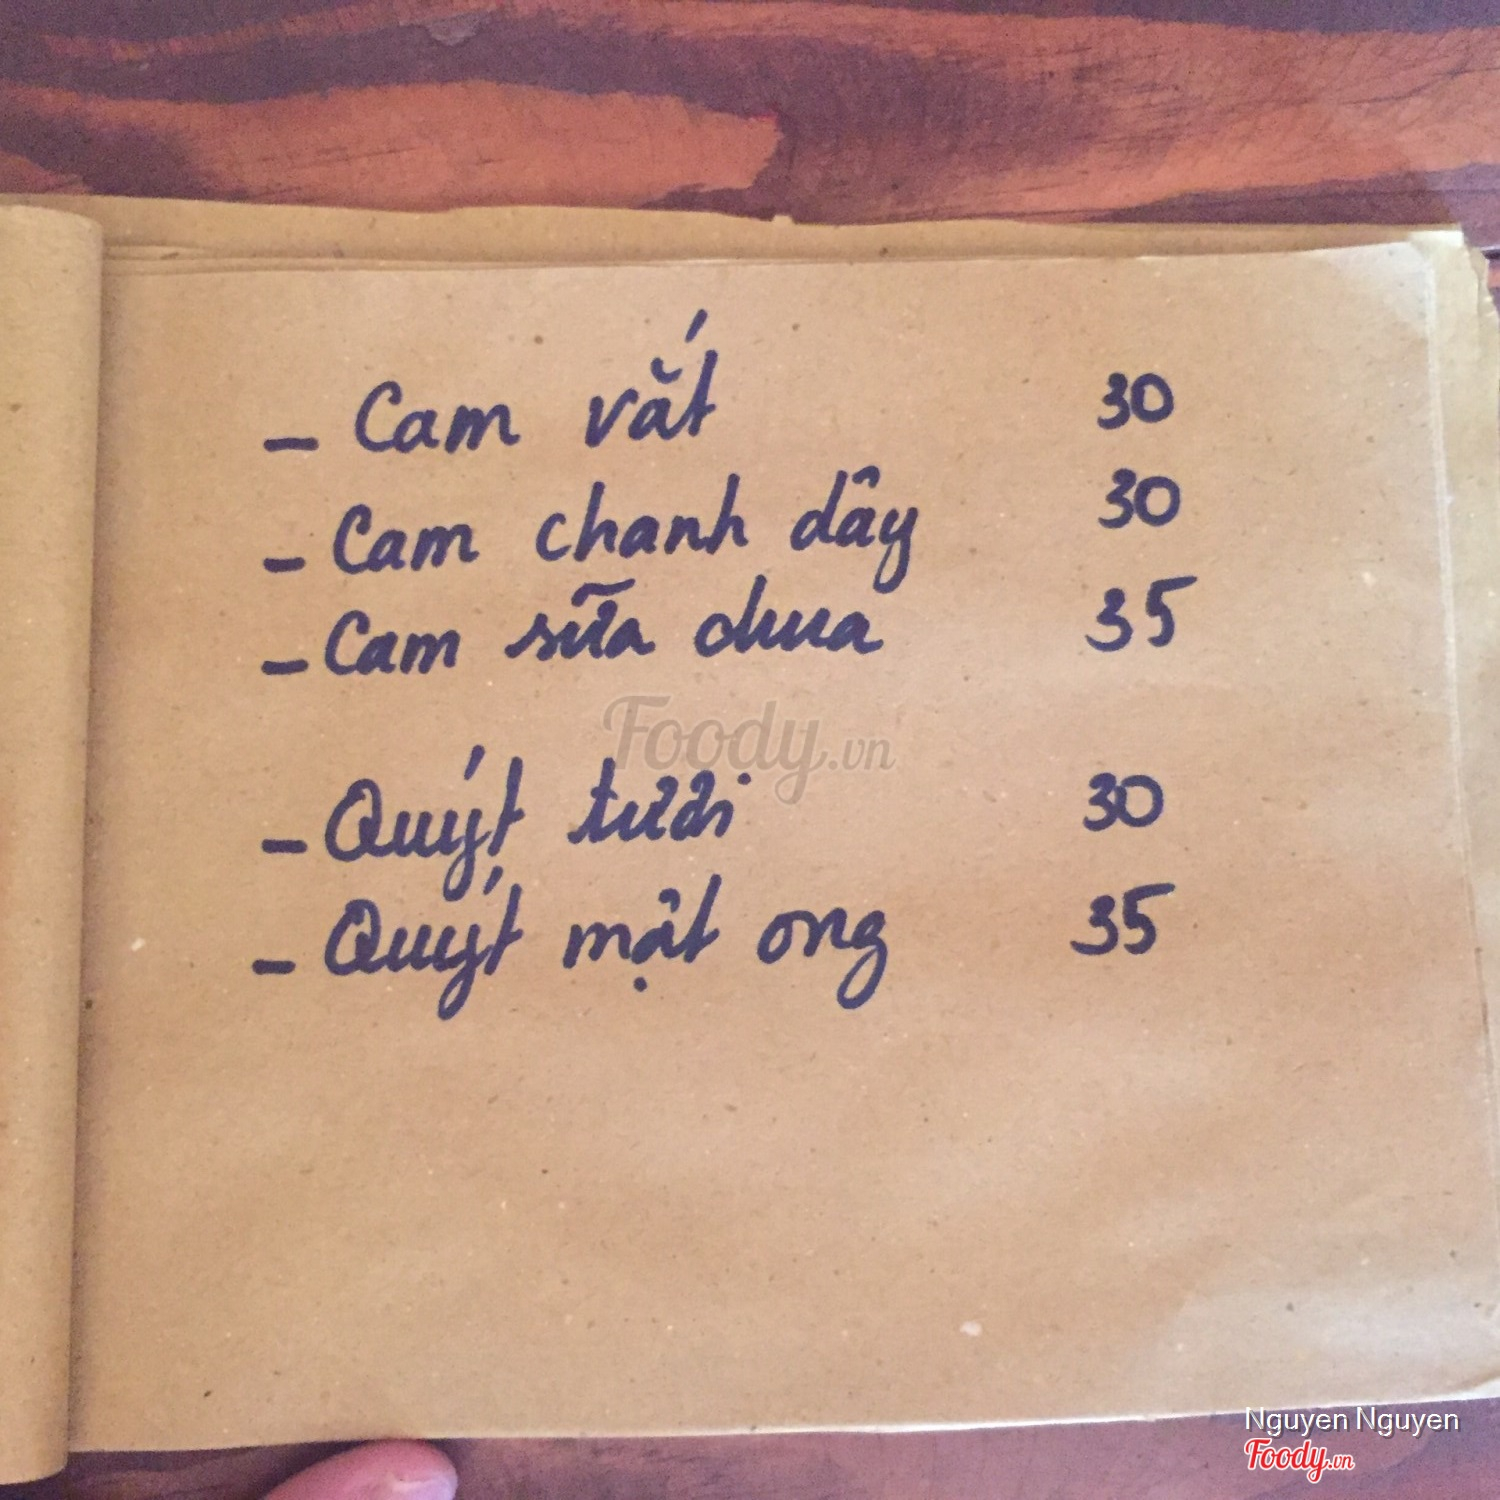 - Cam vắt 30
- Cam chanh dây 30
- Cam sữa dưa 35
Foody.vn
- Quýt tươi 30
- Quýt mật ong 35
Nguyen Nguyen
Foody.vn